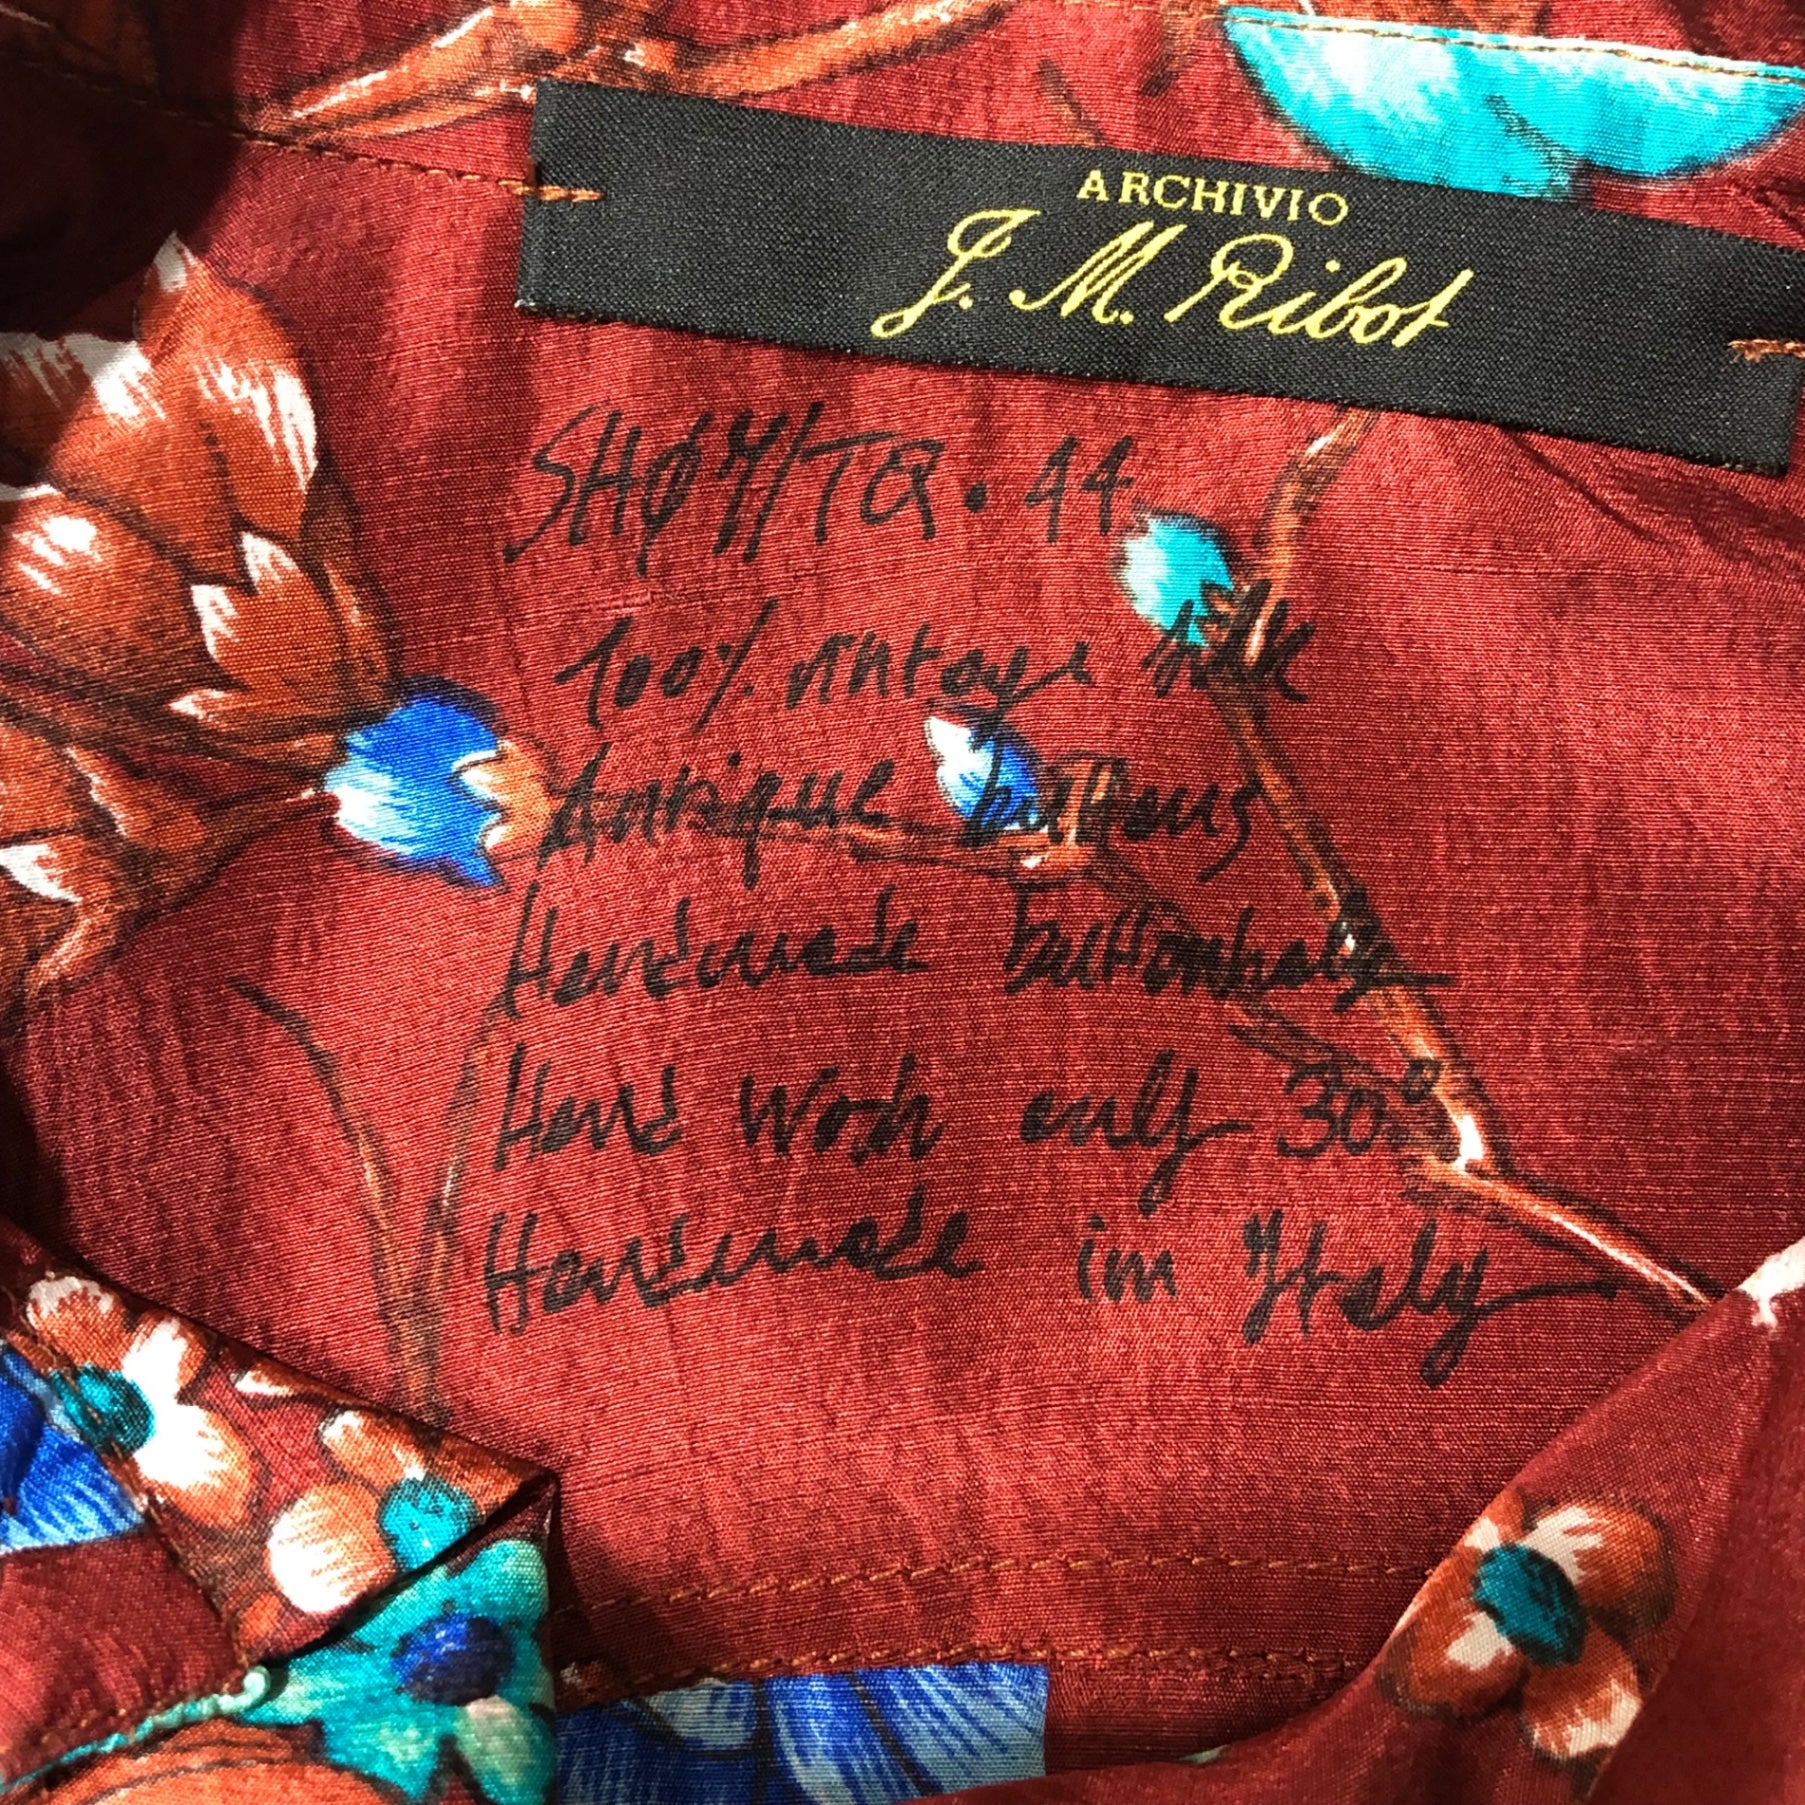 ARCHIVIO
J. M. Ribot
SHØ7/TQ. 44
100% vintage silk
Antique buttons
Handmade buttonholes
Hand Wash only 30°
Handmade in Italy